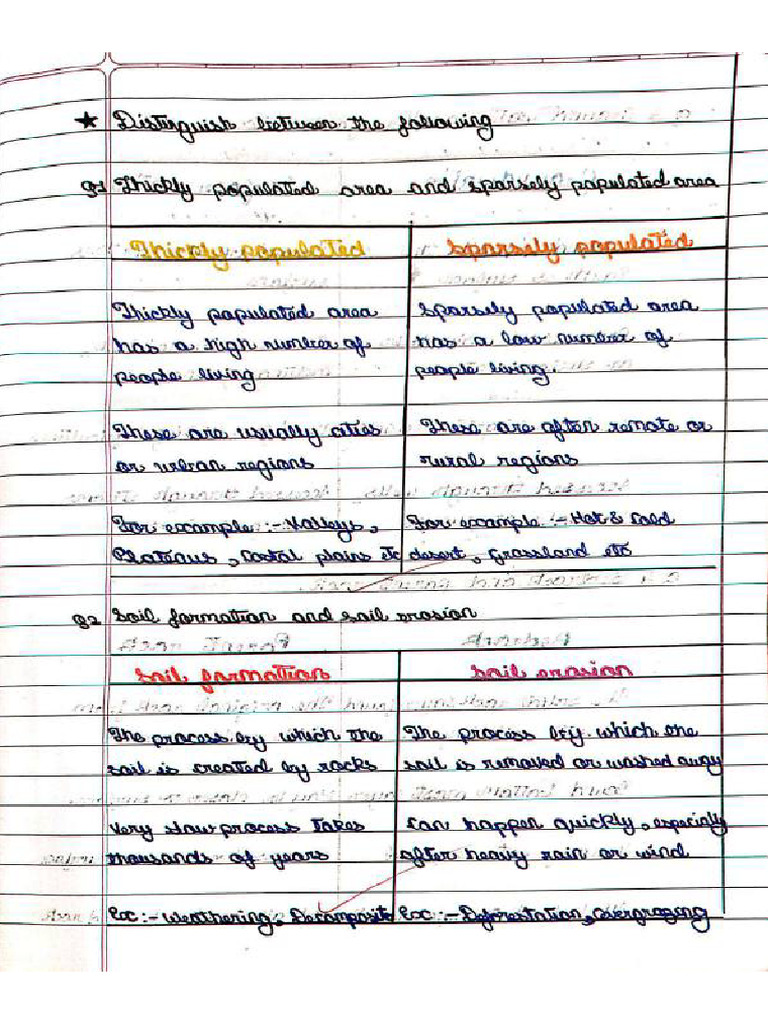 ★ Distinguish between the following
Q1 Thickly populated area and sparsely populated area
Thickly populated
Sparsely populated
Thickly populated area
has a high number of
people living
Sparsely populated area
has a low number of
people living.
These are usually cities
or urban regions
These are often remote or
rural regions
For example :- Valleys,
Plateaus, Costal plains etc
For example :- Hot & Cold
desert, Grassland etc
Q2 Soil formation and soil erosion
Soil formation
Soil erosion
The process by which the
soil is created by rocks
The process by which the
soil is removed or washed away
Very slow process takes
thousands of years
Can happen quickly, especially
after heavy rain or wind
Ex :- Weathering, Decomposite
Ex :- Deforestation, overgrazing